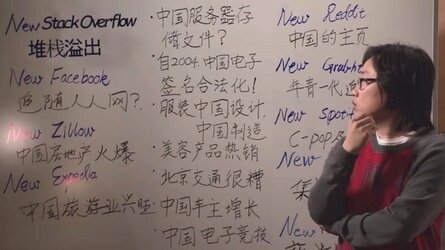 New Stack Overflow
堆栈溢出
New Facebook
追随人人网?
New Zillow
中国房地产火爆
New Expedia
中国旅游业兴旺
·中国服务器存
储文件?
·自2004中国电子
签名合法化!
·服装中国设计,
中国制造
·美容产品热销
·北京交通很糟
·中国车主增长
·中国电子竞技
New Reddit
中国的主页
New
年青一代
New
C-pop
New
New